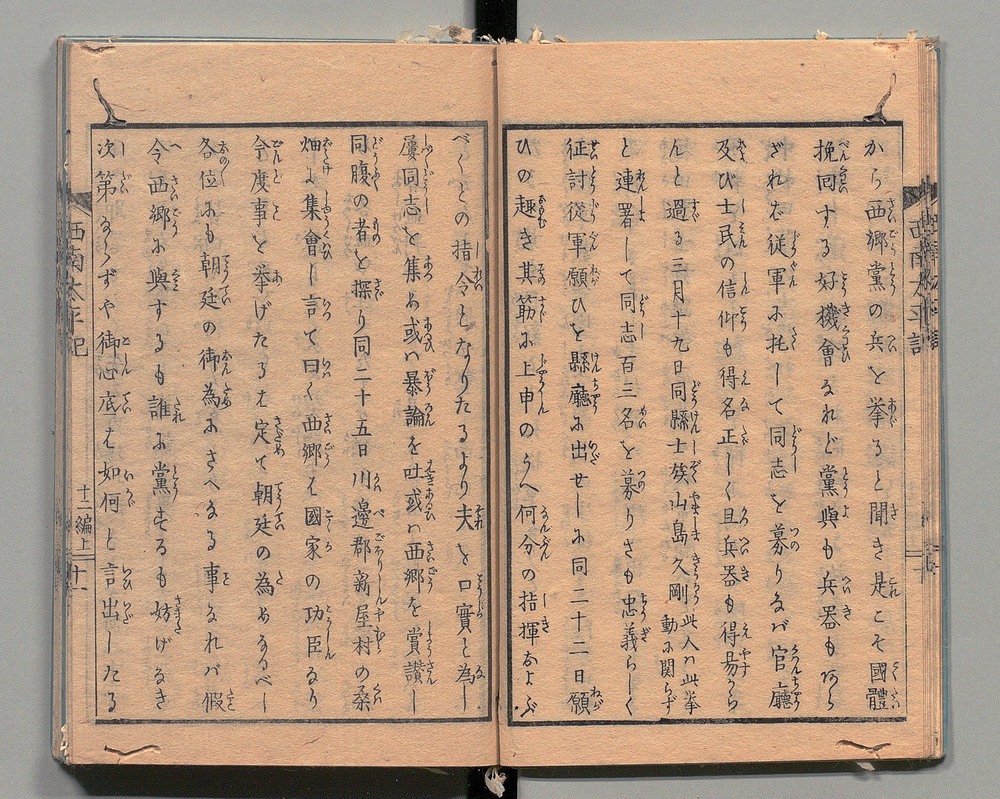 から西郷黨の兵を挙ると聞き是こそ國體
挽回する好機會なれど黨與も兵器もあら
ざれば従軍に托して同志を募りなば官廳
及び士民の信仰も得名正しく且兵器も得易から
んと過る三月十九日同縣士族山島久剛此人は此挙動に関らず
と連署して同志百三名を募りさも忠義らしく
征討従軍願ひを縣廳に出せしに同二十二日願
ひの趣き其筋に上申のうへ何分の指揮およぶ
べくとの指令となりたるより夫を口實と為し
屡同志を集め或は暴論を吐或は西郷を賞讃し
同腹の者を探り同二十五日川邊郡新屋村の桑
畑に集會し言て曰く西郷は國家の功臣なり
今度事を挙げたるは定て朝廷の為めなるべし
各位にも朝廷の御為にさへなる事なれバ假
令西郷に與するも誰に黨するも妨げなき
次第ならずや御心底は如何と言出したる
西南太平記
西南太平記
十二編上
十一